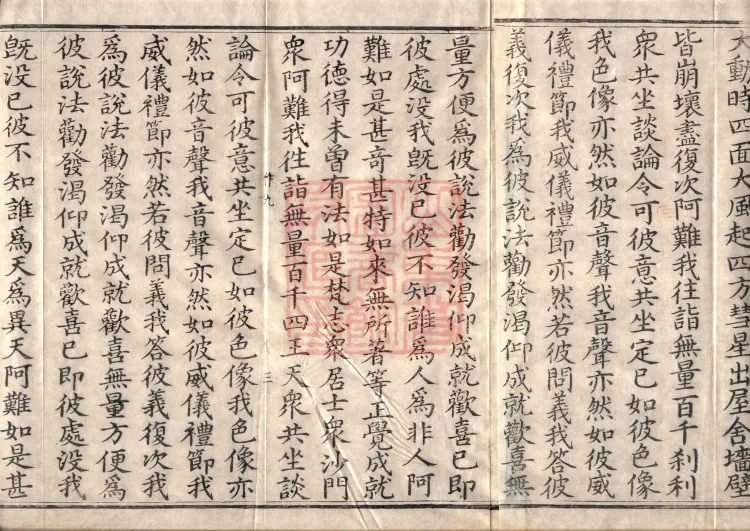 大動時四面大風起四方彗星出屋舍墻壁
皆崩壞盡復次阿難我往詣無量百千刹利
衆共坐談論令可彼意共坐定已如彼色像
我色像亦然如彼音聲我音聲亦然如彼威
儀禮節我威儀禮節亦然若彼問義我答彼
義復次我爲彼說法勸發渴仰成就歡喜無
量方便爲彼說法勸發渴仰成就歡喜已即
彼處没我旣没已彼不知誰爲人爲非人阿
難如是甚奇甚特如來無所著等正覺成就
功德得未曾有法如是梵志衆居士衆沙門
衆阿難我往詣無量百千四王天衆共坐談
三
論令可彼意共坐定已如彼色像我色像亦
然如彼音聲我音聲亦然如彼威儀禮節我
威儀禮節亦然若彼問義我答彼義復次我
爲彼說法勸發渴仰成就歡喜無量方便爲
彼說法勸發渴仰成就歡喜已即彼處没我
旣没已彼不知誰爲天爲異天阿難如是甚